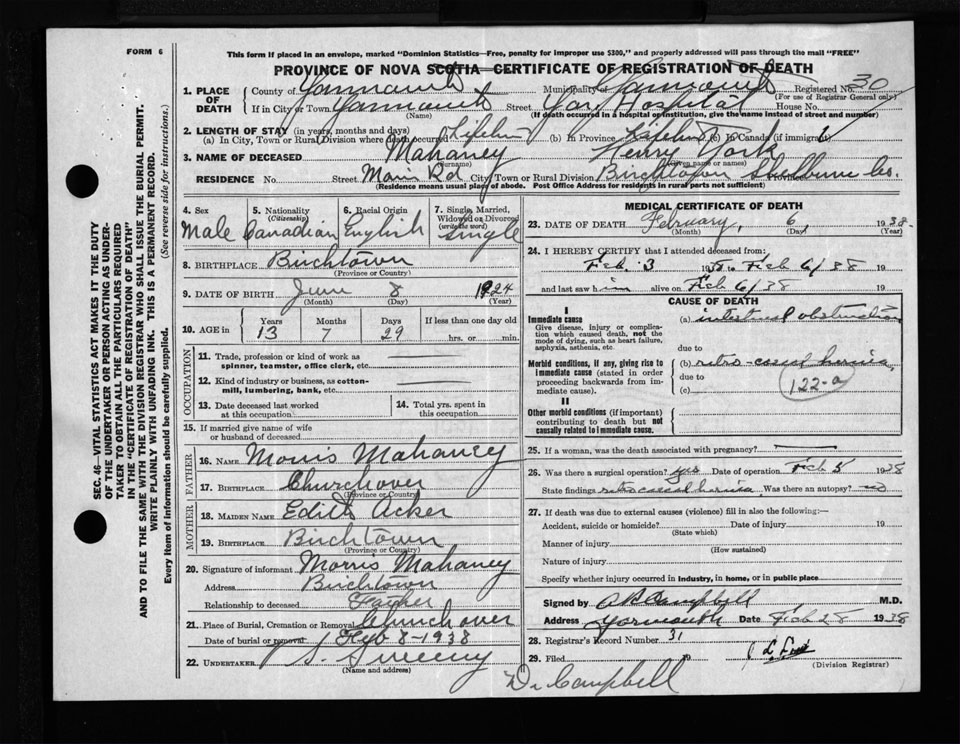 FORM 6
This form if placed in an envelope, marked "Dominion Statistics—Free, penalty for improper use $300," and properly addressed will pass through the mail "FREE"
PROVINCE OF NOVA SCOTIA—CERTIFICATE OF REGISTRATION OF DEATH
1. PLACE OF DEATH County of Yarmouth Municipality of Yarmouth Registered No. 30
(For use of Registrar General only)
If in City or Town Yarmouth Street Yar. Hospital House No.
(Name) (If death occurred in a hospital or institution, give the name instead of street and number)
2. LENGTH OF STAY (in years, months and days)
(a) In City, Town or Rural Division where death occurred Lifetime (b) In Province Lifetime (c) In Canada (if immigrant)
3. NAME OF DECEASED Mahaney Henry York
(Surname) (Given name or names)
RESIDENCE No. Street Main Rd City, Town or Rural Division Birchtown Province Shelburne Co.
(Residence means usual place of abode. Post Office Address for residents in rural parts not sufficient)
4. Sex Male
5. Nationality (Citizenship) Canadian
6. Racial Origin English
7. Single, Married, Widowed or Divorced (write the word) Single
8. BIRTHPLACE Birchtown
(Province or Country)
9. DATE OF BIRTH June 8 1924
(Month) (Day) (Year)
10. AGE in Years 13 Months 7 Days 29 If less than one day old hrs. or min.
OCCUPATION
11. Trade, profession or kind of work as spinner, teamster, office clerk, etc.
12. Kind of industry or business, as cotton-mill, lumbering, bank, etc.
13. Date deceased last worked at this occupation
14. Total yrs. spent in this occupation
15. If married give name of wife or husband of deceased
FATHER
16. NAME Morris Mahaney
17. BIRTHPLACE Churchover
(Province or Country)
MOTHER
18. MAIDEN NAME Edith Acker
19. BIRTHPLACE Birchtown
(Province or Country)
20. Signature of informant Morris Mahaney
Address Birchtown
Relationship to deceased Father
21. Place of Burial, Cremation or Removal Churchover
Date of burial or removal Feb 8-1938
22. UNDERTAKER S. Sweeny
(Name and address)
MEDICAL CERTIFICATE OF DEATH
23. DATE OF DEATH February, 6, 1938
(Month) (Day) (Year)
24. I HEREBY CERTIFY that I attended deceased from:
Feb. 3 19 to Feb 6/38 19
and last saw him alive on Feb 6/38 19
CAUSE OF DEATH
I
Immediate cause
Give disease, injury or complication which caused death, not the mode of dying, such as heart failure, asphyxia, asthenia, etc.
(a) intestinal obstruction
due to
Morbid conditions, if any, giving rise to immediate cause (stated in order proceeding backwards from immediate cause).
(b) retro-caecal hernia
due to
(c) 122-a
II
Other morbid conditions (if important) contributing to death but not causally related to immediate cause.
25. If a woman, was the death associated with pregnancy?
26. Was there a surgical operation? yes Date of operation Feb 5 1938
State findings retro caecal hernia. Was there an autopsy? no
27. If death was due to external causes (violence) fill in also the following:—
Accident, suicide or homicide? Date of injury 19
(State which)
Manner of injury
(How sustained)
Nature of injury
Specify whether injury occurred in industry, in home, or in public place
Signed by A B Campbell M.D.
Address Yarmouth Date Feb 28 1938
28. Registrar's Record Number 31
29. Filed 19
(Division Registrar)
Dr Campbell
SEC. 46—VITAL STATISTICS ACT MAKES IT THE DUTY
OF THE UNDERTAKER OR PERSON ACTING AS UNDER-
TAKER TO OBTAIN ALL THE PARTICULARS REQUIRED
IN THE "CERTIFICATE OF REGISTRATION OF DEATH"
AND TO FILE THE SAME WITH THE DIVISION REGISTRAR WHO SHALL ISSUE THE BURIAL PERMIT.
WRITE PLAINLY WITH UNFADING INK. THIS IS A PERMANENT RECORD.
Every item of information should be carefully supplied. (See reverse side for instructions.)